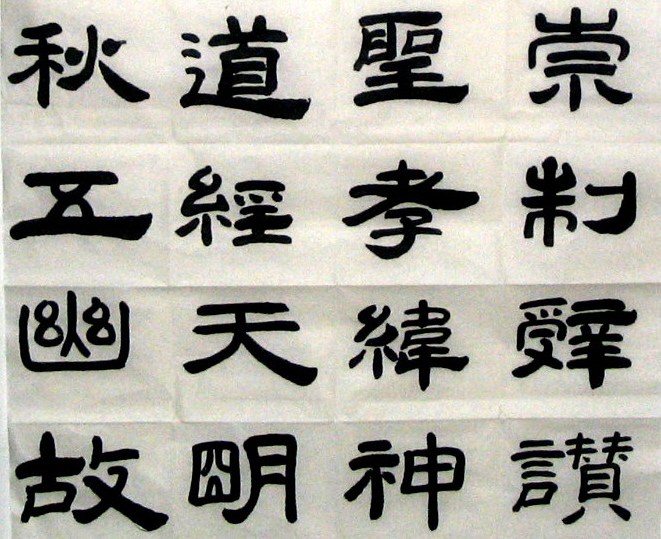 崇聖道秋
制孝經五
辭緯天幽
讃神明故